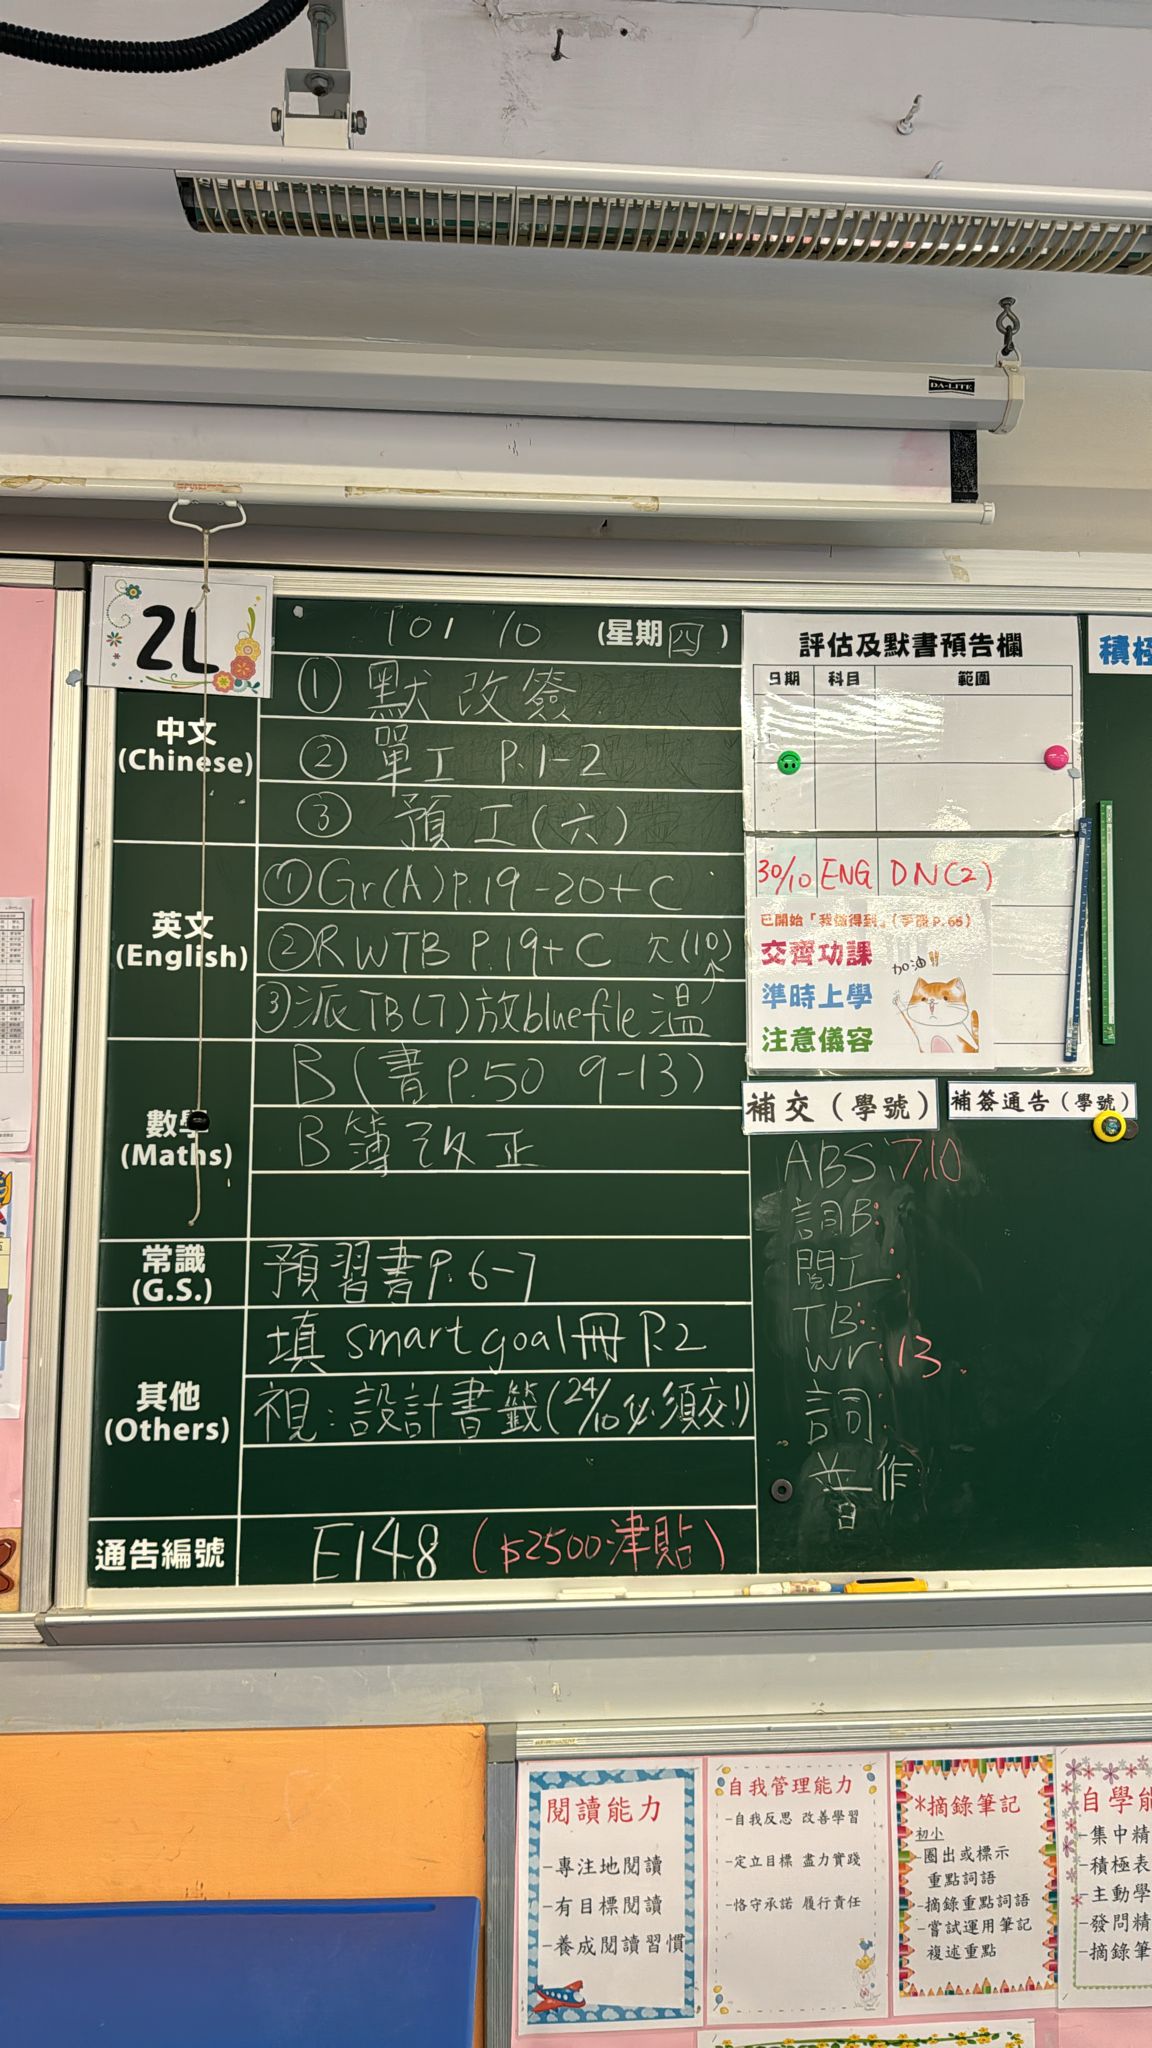 DA-LITE
2L
10 (星期四)
中文
(Chinese)
① 默改簽
② 單工 P.1-2
③ 預工(六)
英文
(English)
① Gr(A) P.19-20+C
② RWTB P.19+C 欠(10)
③ 派TB(7)放bluefile溫
數學
(Maths)
B(書P.50 9-13)
B簿改正
常識
(G.S.)
預習書P.6-7
其他
(Others)
填 smart goal冊 P.2
視:設計書籤(24/10必須交!)
通告編號
E148 ($2500津貼)
評估及默書預告欄
日期 科目 範圍
30/10 ENG DN(2)
已開始「我做得到」(手冊P.65)
交齊功課
準時上學
注意儀容
加油!!
積極
補交(學號)
補簽通告(學號)
ABS:7,10
詞B:
閱工:
TB:
Wr:13
詞:
普 作
閱讀能力
-專注地閱讀
-有目標閱讀
-養成閱讀習慣
自我管理能力
-自我反思 改善學習
-定立目標 盡力實踐
-恪守承諾 履行責任
*摘錄筆記
初小
-圈出或標示
重點詞語
-摘錄重點詞語
-嘗試運用筆記
複述重點
自學能
-集中精
-積極表
-主動學
-發問精
-摘錄筆